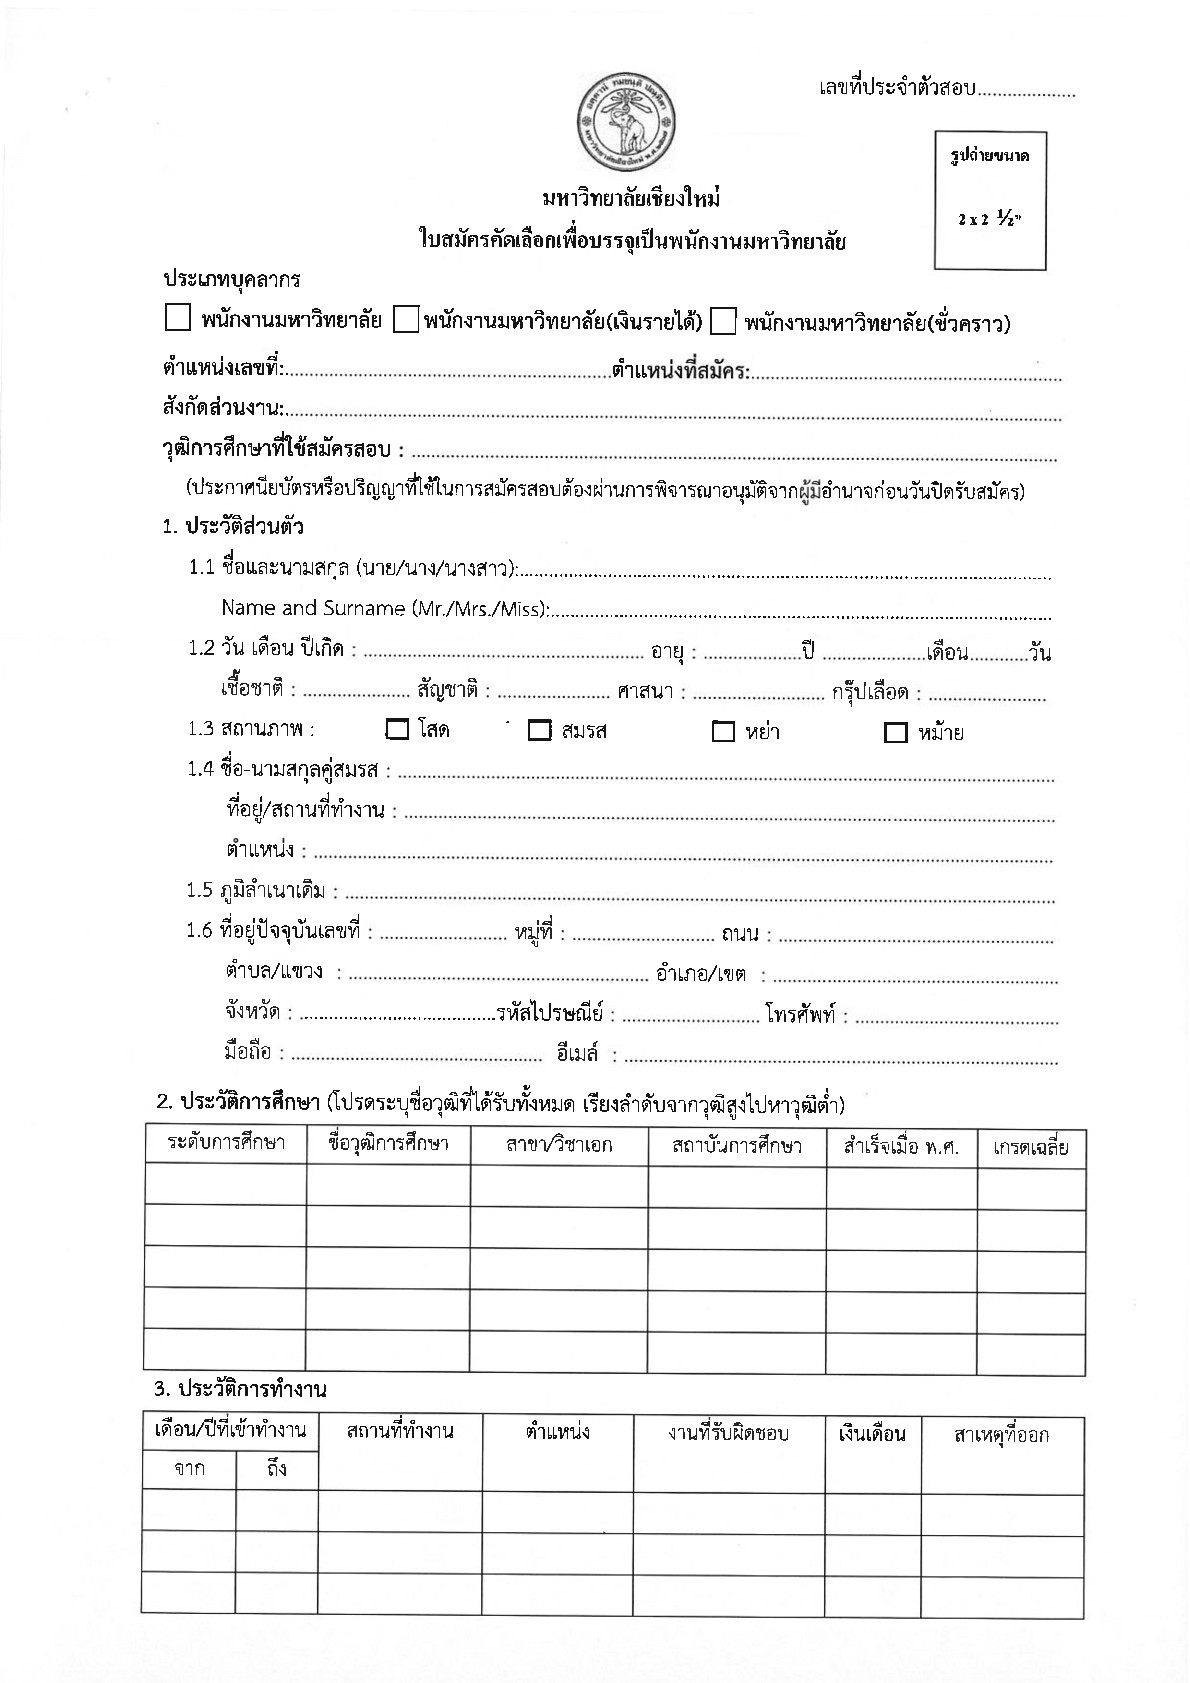 เลขที่ประจำตัวสอบ...................
รูปถ่ายขนาด
2 x 2 ½"
มหาวิทยาลัยเชียงใหม่
ใบสมัครคัดเลือกเพื่อบรรจุเป็นพนักงานมหาวิทยาลัย
ประเภทบุคลากร
☐ พนักงานมหาวิทยาลัย ☐ พนักงานมหาวิทยาลัย(เงินรายได้) ☐ พนักงานมหาวิทยาลัย(ชั่วคราว)
ตำแหน่งเลขที่:...................ตำแหน่งที่สมัคร:...................
สังกัดส่วนงาน:...................
วุฒิการศึกษาที่ใช้สมัครสอบ : ...................
(ประกาศนียบัตรหรือปริญญาที่ใช้ในการสมัครสอบต้องผ่านการพิจารณาอนุมัติจากผู้มีอำนาจก่อนวันปิดรับสมัคร)
1. ประวัติส่วนตัว
1.1 ชื่อและนามสกุล (นาย/นาง/นางสาว):...................
Name and Surname (Mr./Mrs./Miss):...................
1.2 วัน เดือน ปีเกิด : ................... อายุ : ...................ปี ...................เดือน...........วัน
เชื้อชาติ : ................... สัญชาติ : ................... ศาสนา : ................... กรุ๊ปเลือด : ...................
1.3 สถานภาพ : ☐ โสด ☐ สมรส ☐ หย่า ☐ หม้าย
1.4 ชื่อ-นามสกุลคู่สมรส : ...................
ที่อยู่/สถานที่ทำงาน : ...................
ตำแหน่ง : ...................
1.5 ภูมิลำเนาเดิม : ...................
1.6 ที่อยู่ปัจจุบันเลขที่ : ................... หมู่ที่ : ................... ถนน : ...................
ตำบล/แขวง : ................... อำเภอ/เขต : ...................
จังหวัด : ...................รหัสไปรษณีย์ : ................... โทรศัพท์ : ...................
มือถือ : ................... อีเมล์ : ...................
2. ประวัติการศึกษา (โปรดระบุชื่อวุฒิที่ได้รับทั้งหมด เรียงลำดับจากวุฒิสูงไปหาวุฒิต่ำ)
ระดับการศึกษา ชื่อวุฒิการศึกษา สาขา/วิชาเอก สถาบันการศึกษา สำเร็จเมื่อ พ.ศ. เกรดเฉลี่ย
3. ประวัติการทำงาน
เดือน/ปีที่เข้าทำงาน สถานที่ทำงาน ตำแหน่ง งานที่รับผิดชอบ เงินเดือน สาเหตุที่ออก
จาก ถึง